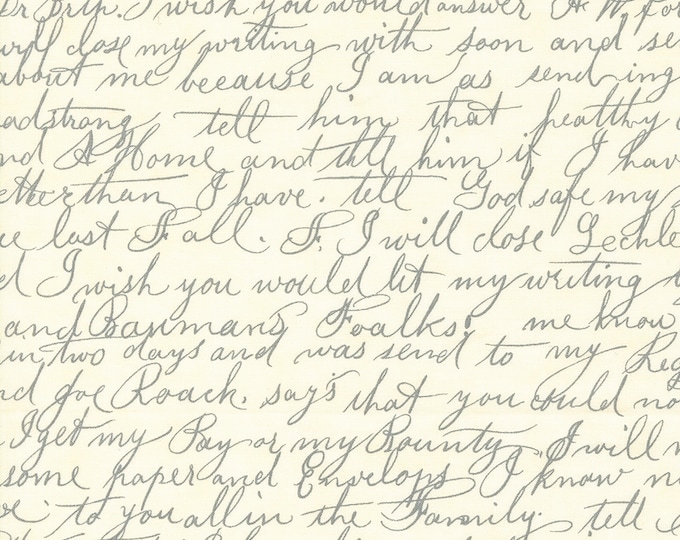 I wish you would answer
will close my writing with soon and
about me because I am as send-ing
adstrang tell him that healthy
nd A Home and till him if I hav
etter than I have. tell God safe my
last Fall. F. I will close Lechle
d I wish you would lit my writing
and Bauman's Foalks. me know
in two days and was send to my Reg
nd Joe Roack. say's that you could no
I get my Pay or my Bounty. I will
some paper and Envelops I know
to you all in the Family. tell